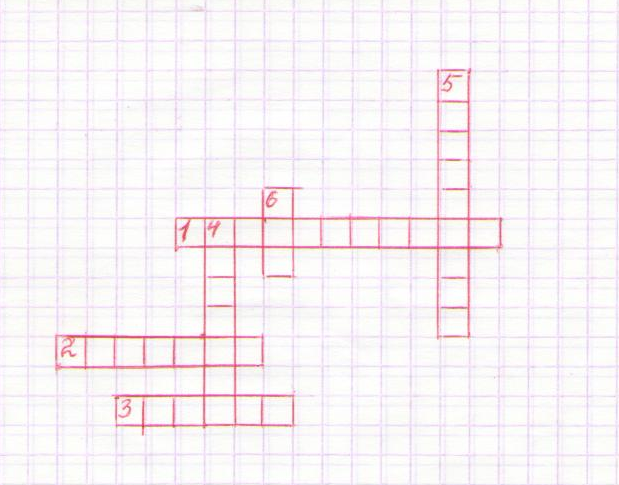 5
6
1 4
2
3